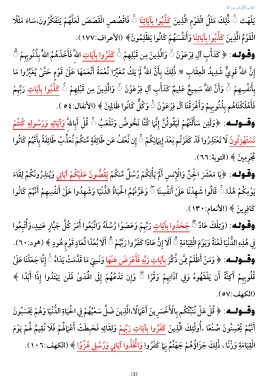 يَلْهَث ۚ ذَّٰلِكَ مَثَلُ الْقَوْمِ الَّذِينَ كَذَّبُوا بِآيَاتِنَا ۚ فَاقْصُصِ الْقَصَصَ لَعَلَّهُمْ يَتَفَكَّرُونَ، سَاءَ مَثَلًا
الْقَوْمُ الَّذِينَ كَذَّبُوا بِآيَاتِنَا وَأَنفُسَهُمْ كَانُوا يَظْلِمُونَ﴾ (الأعراف:١٧٧).
وقوله: ﴿ كَدَأْبِ آلِ فِرْعَوْنَ ۙ وَالَّذِينَ مِن قَبْلِهِمْ ۚ كَفَرُوا بِآيَاتِ اللَّهِ فَأَخَذَهُمُ اللَّهُ بِذُنُوبِهِمْ ۗ
إِنَّ اللَّهَ قَوِيٌّ شَدِيدُ الْعِقَابِ * ذَٰلِكَ بِأَنَّ اللَّهَ لَمْ يَكُ مُغَيِّرًا نِّعْمَةً أَنْعَمَهَا عَلَىٰ قَوْمٍ حَتَّىٰ يُغَيِّرُوا مَا
بِأَنفُسِهِمْ ۙ وَأَنَّ اللَّهَ سَمِيعٌ عَلِيمٌ كَدَأْبِ آلِ فِرْعَوْنَ ۙ وَالَّذِينَ مِن قَبْلِهِمْ ۚ كَذَّبُوا بِآيَاتِ رَبِّهِمْ
فَأَهْلَكْنَاهُم بِذُنُوبِهِمْ وَأَغْرَقْنَا آلَ فِرْعَوْنَ ۚ وَكُلٌّ كَانُوا ظَالِمِينَ ﴾ (الأنفال:٥٤).
وقوله: ﴿وَلَئِن سَأَلْتَهُمْ لَيَقُولُنَّ إِنَّمَا كُنَّا نَخُوضُ وَنَلْعَبُ ۚ قُلْ أَبِاللَّهِ وَآيَاتِهِ وَرَسُولِهِ كُنتُمْ
تَسْتَهْزِئُونَ لَا تَعْتَذِرُوا قَدْ كَفَرْتُم بَعْدَ إِيمَانِكُمْ ۚ إِن نَّعْفُ عَن طَائِفَةٍ مِّنكُمْ نُعَذِّبْ طَائِفَةً بِأَنَّهُمْ كَانُوا
مُجْرِمِينَ ﴾ (التوبة:٦٦).
وقوله: ﴿يَا مَعْشَرَ الْجِنِّ وَالْإِنسِ أَلَمْ يَأْتِكُمْ رُسُلٌ مِّنكُمْ يَقُصُّونَ عَلَيْكُمْ آيَاتِي وَيُنذِرُونَكُمْ لِقَاءَ
يَوْمِكُمْ هَٰذَا ۚ قَالُوا شَهِدْنَا عَلَىٰ أَنفُسِنَا ۖ وَغَرَّتْهُمُ الْحَيَاةُ الدُّنْيَا وَشَهِدُوا عَلَىٰ أَنفُسِهِمْ أَنَّهُمْ كَانُوا
كَافِرِينَ ﴾ (الأنعام:١٣٠).
وقوله: ﴿ وَتِلْكَ عَادٌ ۖ جَحَدُوا بِآيَاتِ رَبِّهِمْ وَعَصَوْا رُسُلَهُ وَاتَّبَعُوا أَمْرَ كُلِّ جَبَّارٍ عَنِيدٍ، وَأُتْبِعُوا
فِي هَٰذِهِ الدُّنْيَا لَعْنَةً وَيَوْمَ الْقِيَامَةِ ۗ أَلَا إِنَّ عَادًا كَفَرُوا رَبَّهُمْ ۗ أَلَا بُعْدًا لِّعَادٍ قَوْمِ هُودٍ ﴾ (هود:٦٠).
وقوله: ﴿ وَمَنْ أَظْلَمُ مِمَّن ذُكِّرَ بِآيَاتِ رَبِّهِ فَأَعْرَضَ عَنْهَا وَنَسِيَ مَا قَدَّمَتْ يَدَاهُ ۚ إِنَّا جَعَلْنَا عَلَىٰ
قُلُوبِهِمْ أَكِنَّةً أَن يَفْقَهُوهُ وَفِي آذَانِهِمْ وَقْرًا ۖ وَإِن تَدْعُهُمْ إِلَى الْهُدَىٰ فَلَن يَهْتَدُوا إِذًا أَبَدًا ﴾
(الكهف:٥٧).
وقوله: ﴿ قُلْ هَلْ نُنَبِّئُكُم بِالْأَخْسَرِينَ أَعْمَالًا، الَّذِينَ ضَلَّ سَعْيُهُمْ فِي الْحَيَاةِ الدُّنْيَا وَهُمْ يَحْسَبُونَ
أَنَّهُمْ يُحْسِنُونَ صُنْعًا، أُولَٰئِكَ الَّذِينَ كَفَرُوا بِآيَاتِ رَبِّهِمْ وَلِقَائِهِ فَحَبِطَتْ أَعْمَالُهُمْ فَلَا نُقِيمُ لَهُمْ يَوْمَ
الْقِيَامَةِ وَزْنًا، ذَٰلِكَ جَزَاؤُهُمْ جَهَنَّمُ بِمَا كَفَرُوا وَاتَّخَذُوا آيَاتِي وَرُسُلِي هُزُوًا ﴾ (الكهف:١٠٦).